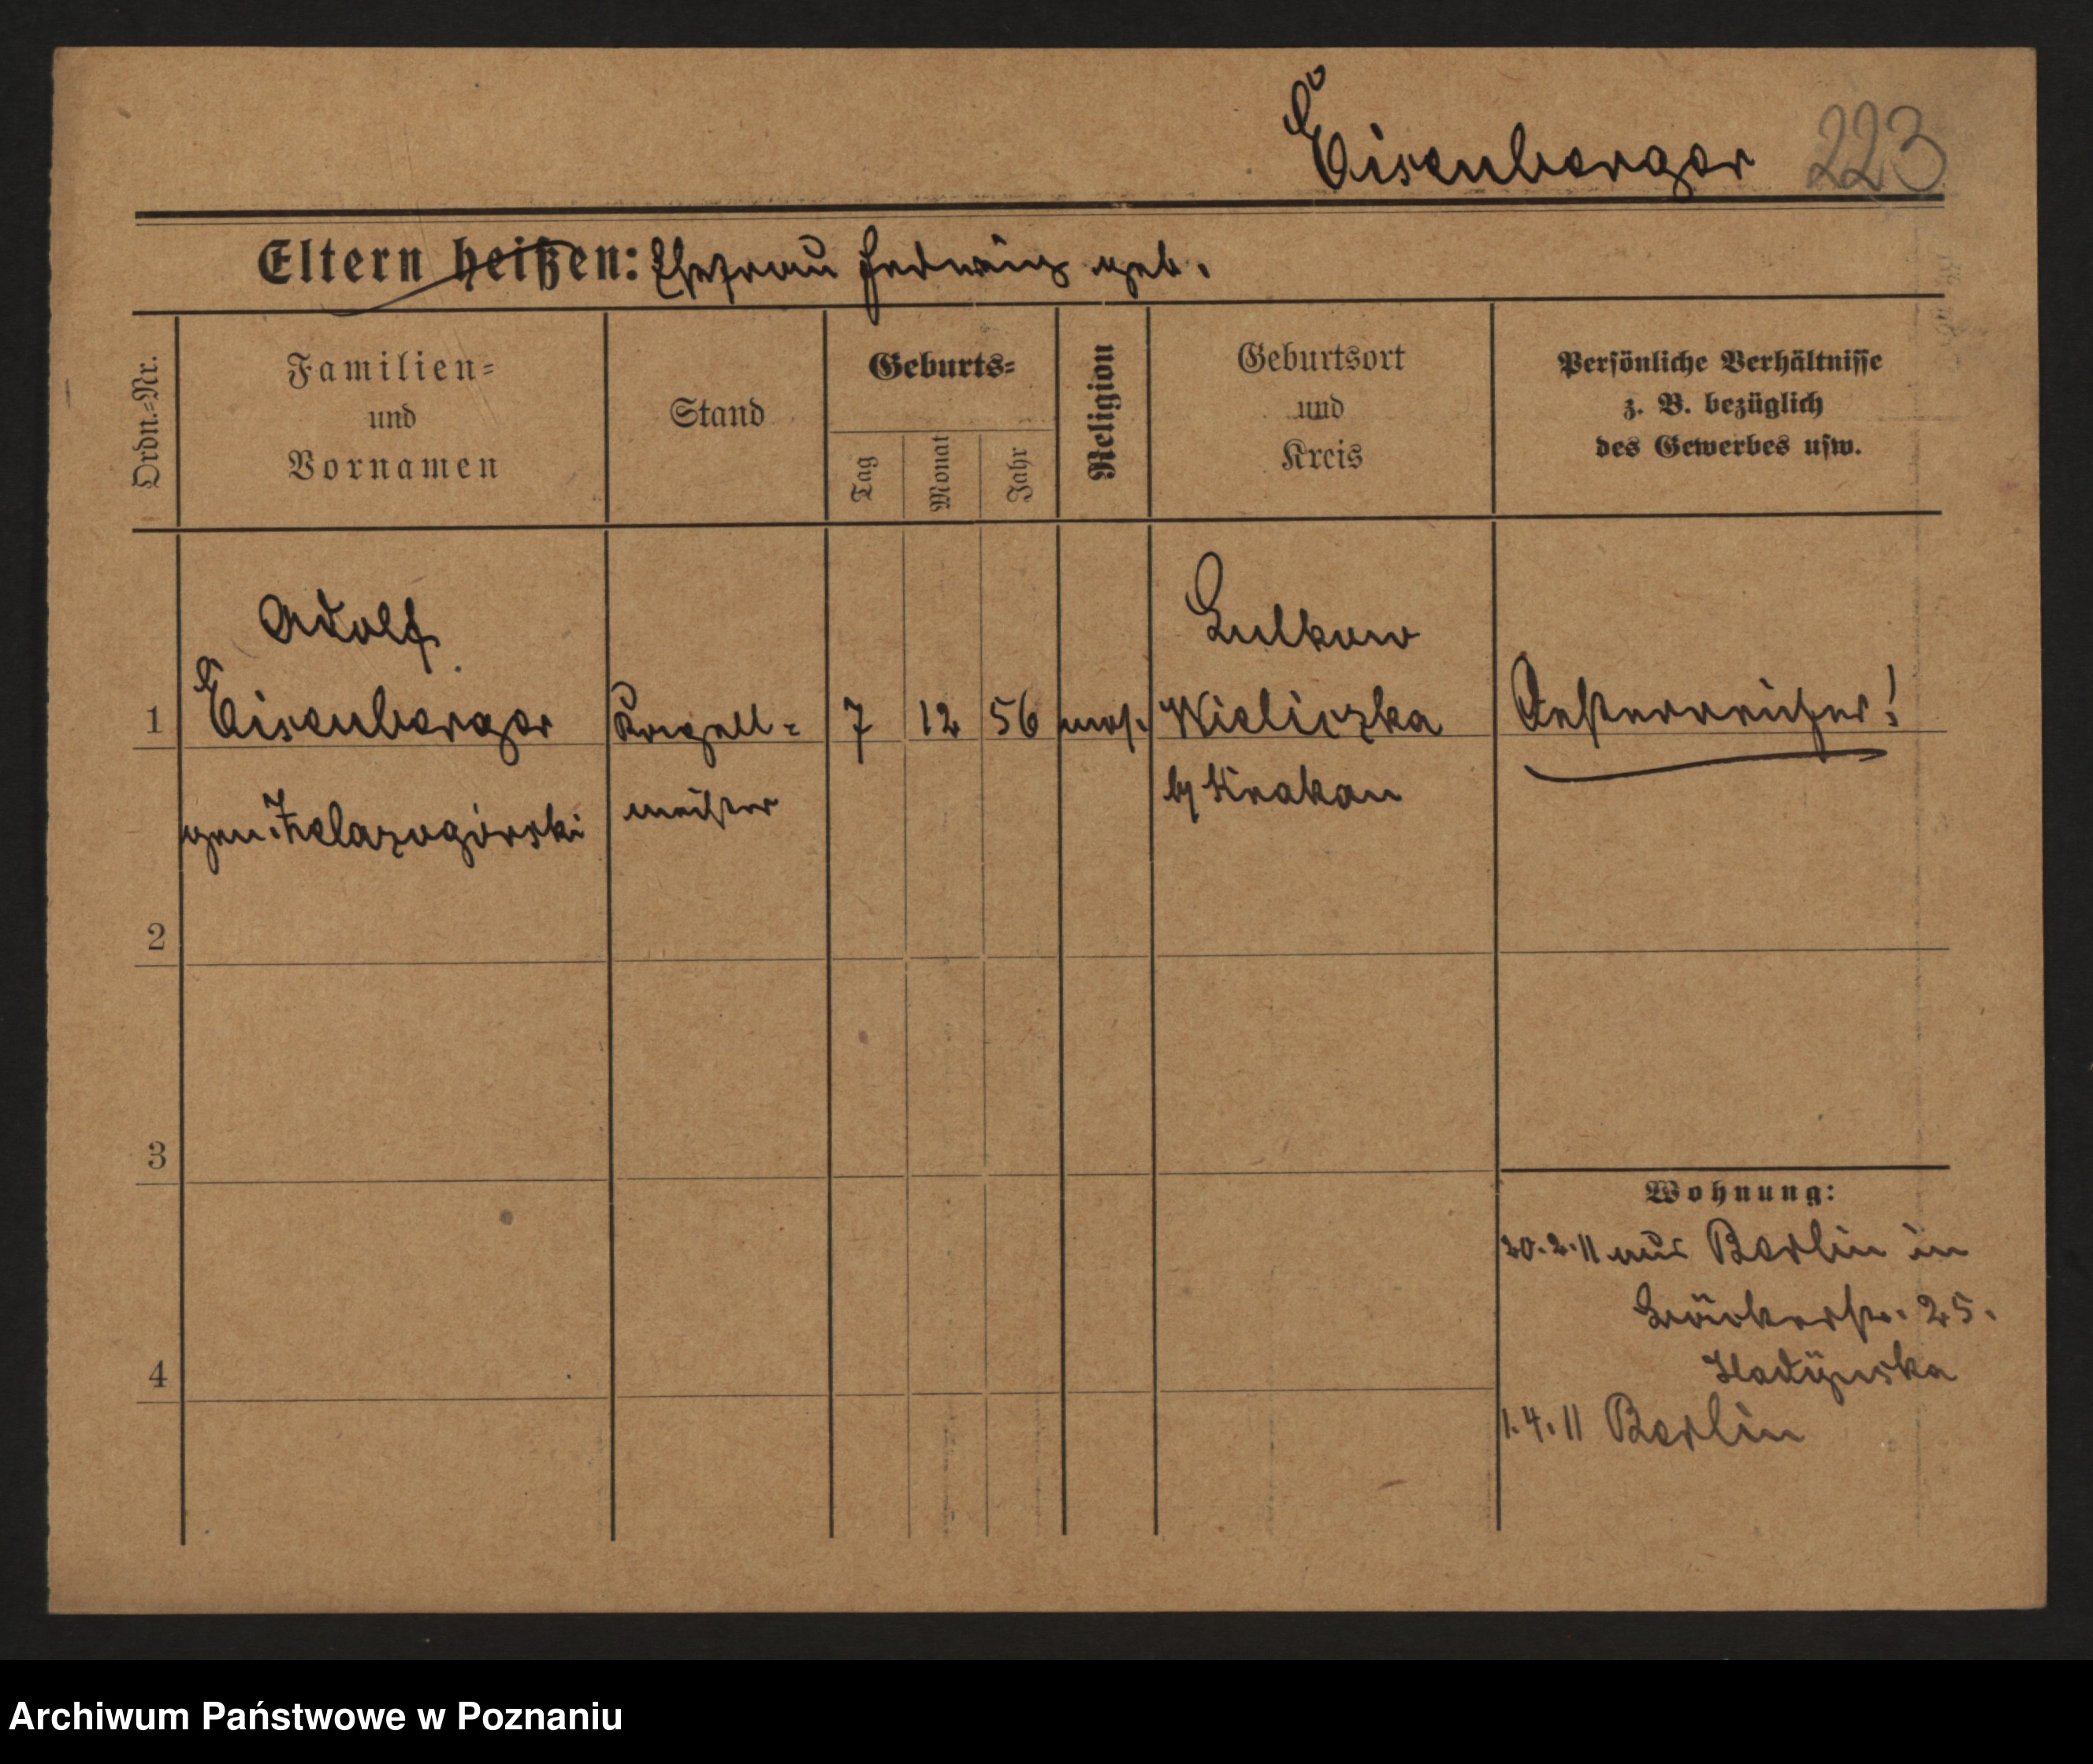 Eisenberger 223
Eltern heißen: Ehefrau Hedwig geb.
Ordn.=Nr.
Familien=
und
Vornamen
Stand
Geburts=
Tag
Monat
Jahr
Religion
Geburtsort
und
Kreis
Persönliche Verhältnisse
z. B. bezüglich
des Gewerbes usw.
Adolf
Lulkow
1 Eisenberger Kapell= 7 12 56 mos. Wieliczka Oesterreicher!
gen. Zelazogórski meister b/ Krakau
2
3
Wohnung:
20.2.11 aus Berlin in
Bäckerstr. 25.
4
1.4.11 Berlin
Archiwum Państwowe w Poznaniu